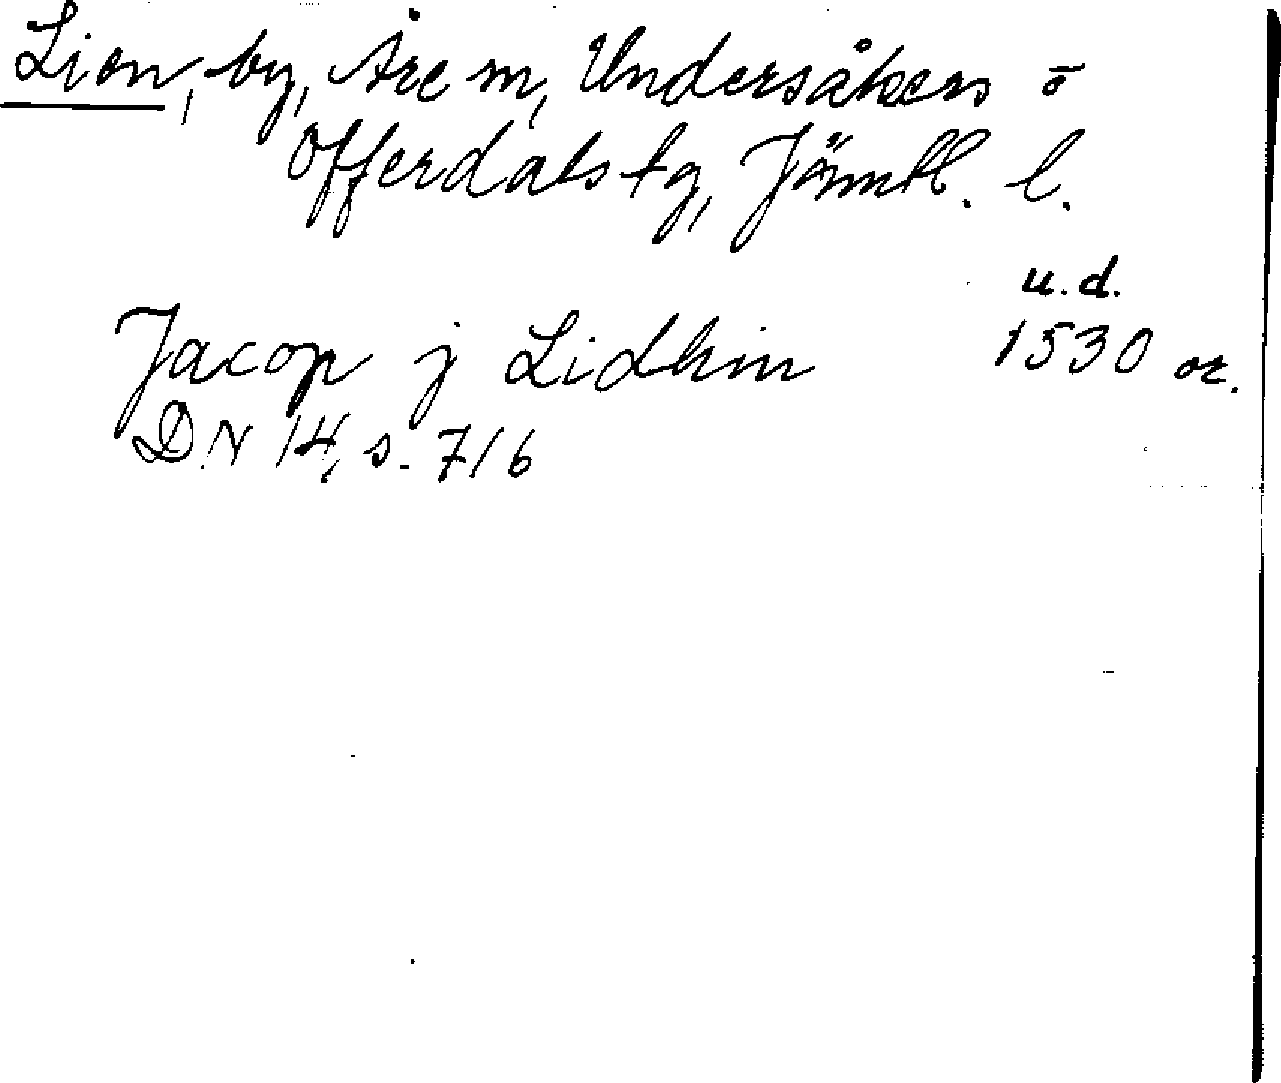 Lien, by, Åre sn, Undersåkers o
Offerdals tg, Jämtl. l.
u.d.
Jacop j Lidhin 1530 or.
DN 14, s. 716